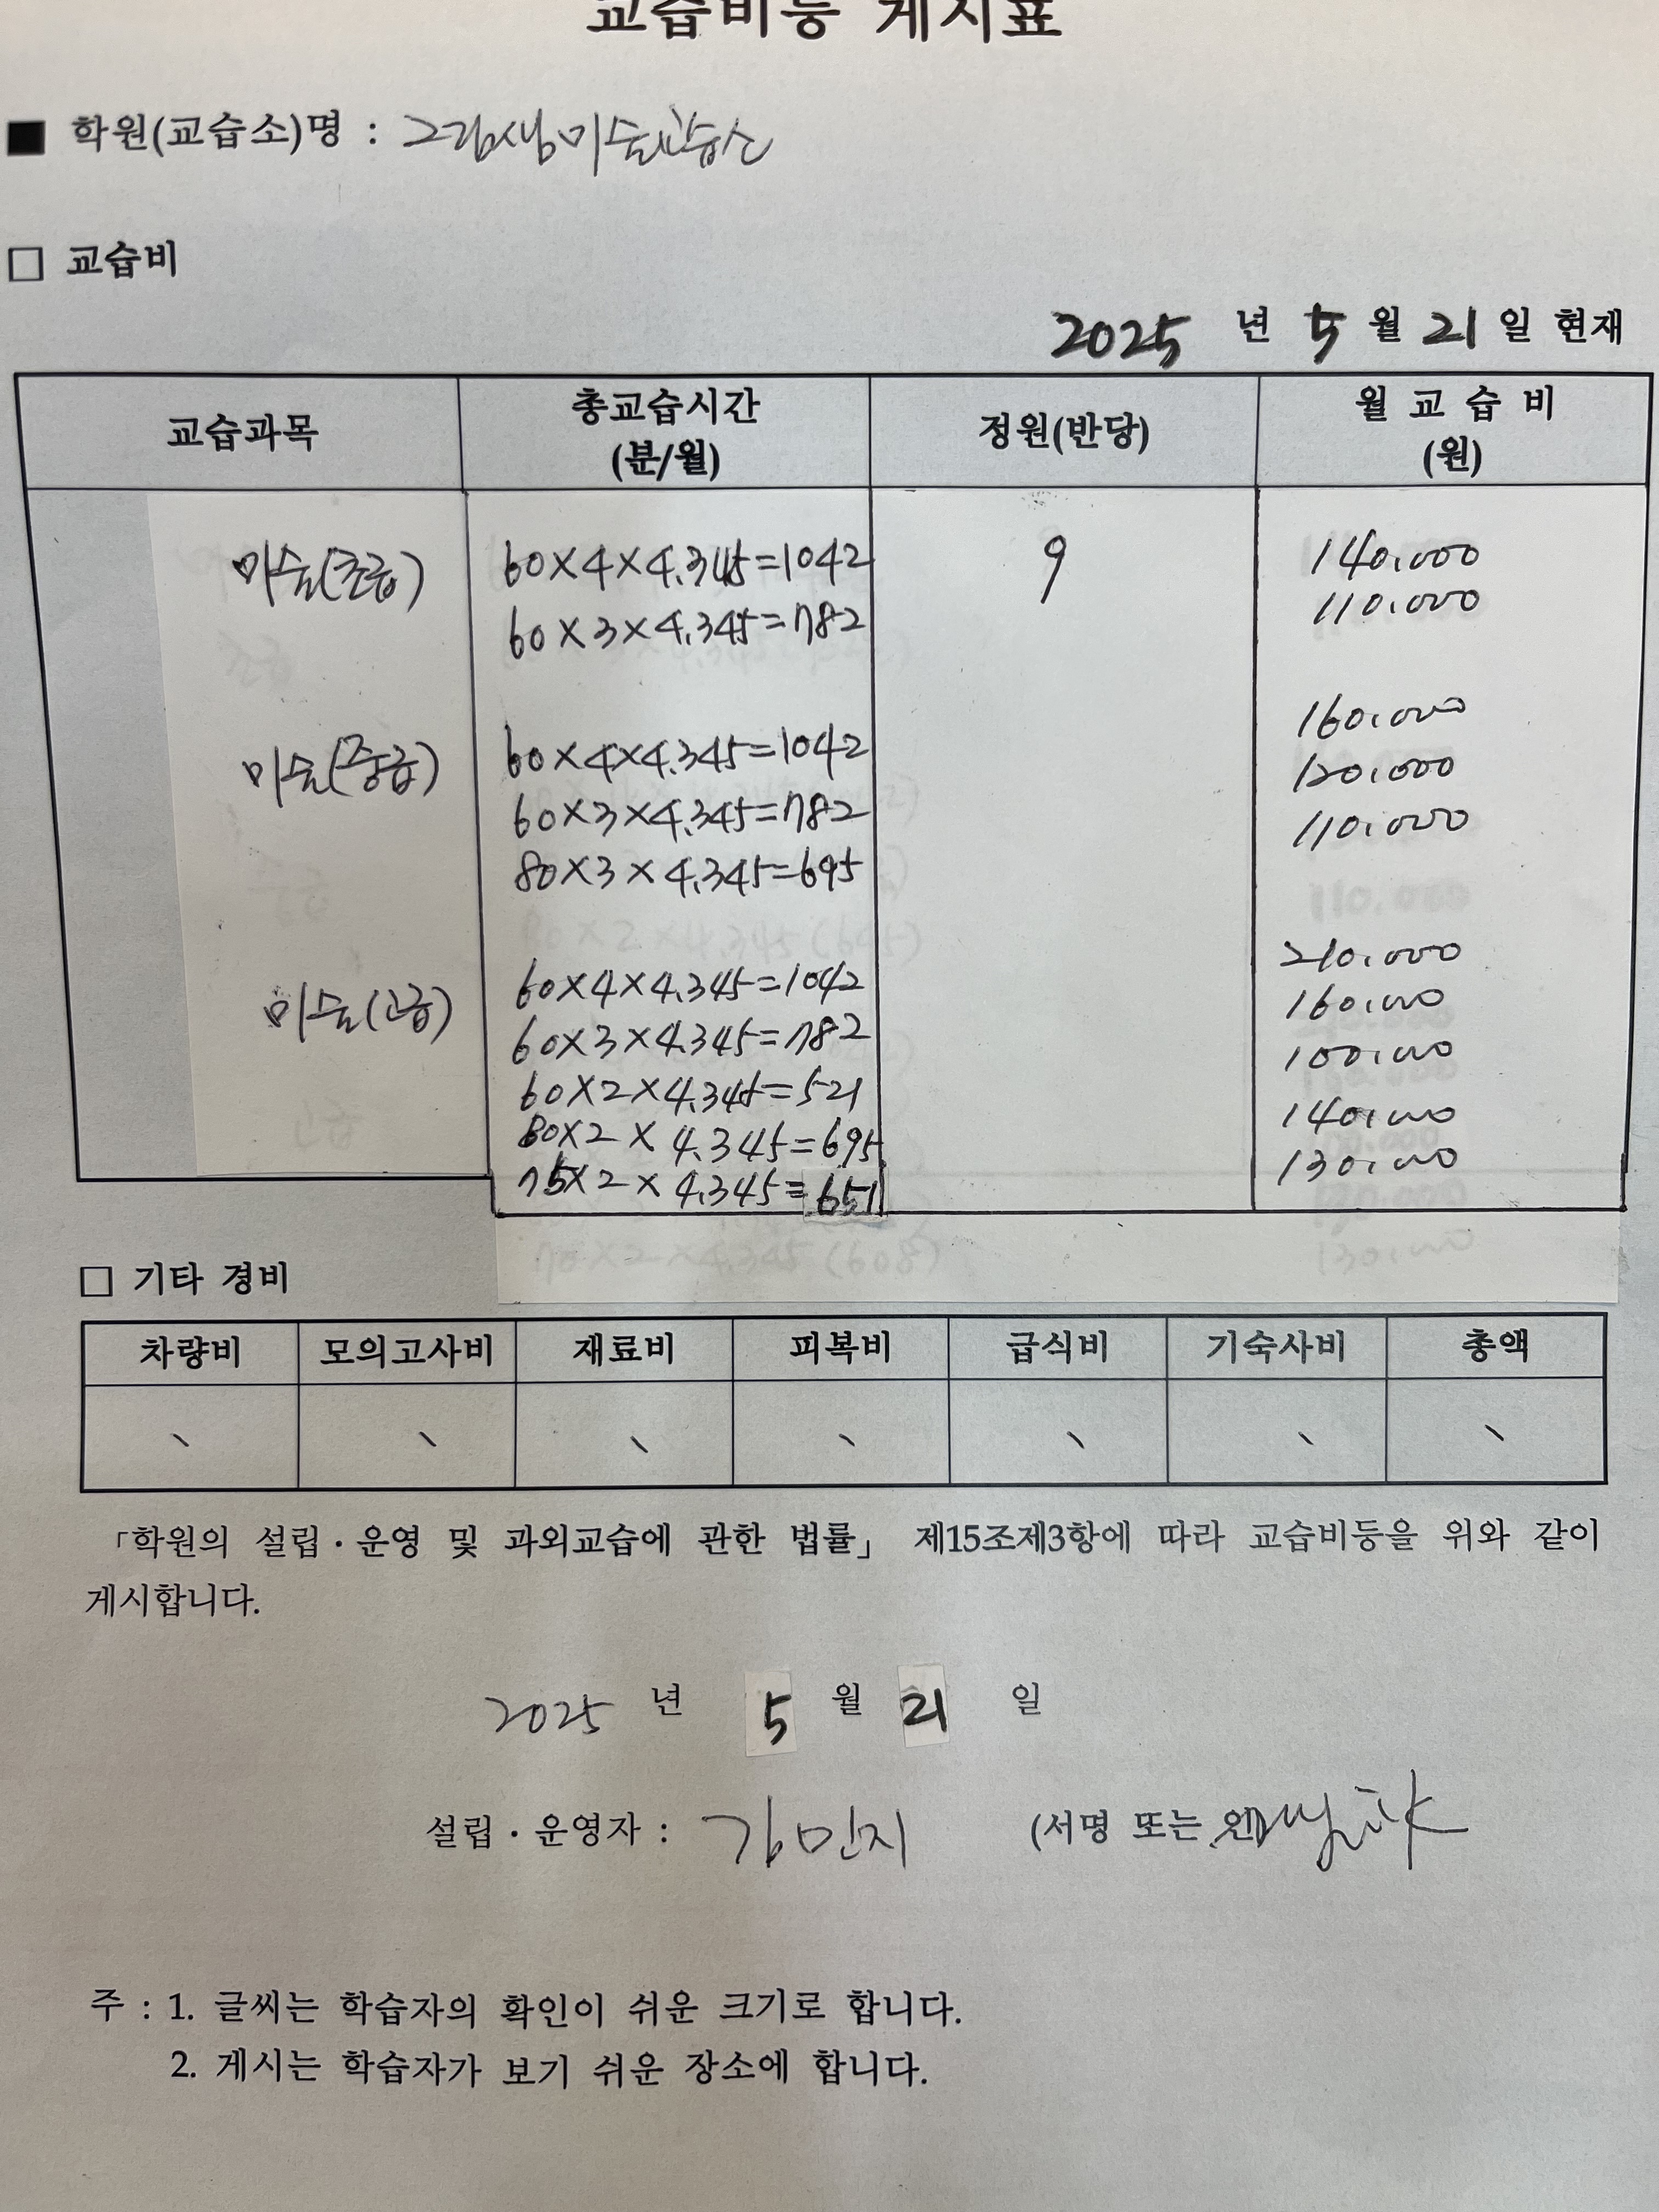 교습비등 게시표
■ 학원(교습소)명 : 그림샘미술교습소
□ 교습비
2025 년 5 월 21 일 현재
교습과목 총교습시간 (분/월) 정원(반당) 월 교 습 비 (원)
미술(초급) 60×4×4.345=1042 9 140,000
60×3×4.345=782 110,000
미술(중급) 60×4×4.345=1042 160,000
60×3×4.345=782 120,000
80×3×4.345=695 110,000
미술(고급) 60×4×4.345=1042 210,000
60×3×4.345=782 160,000
60×2×4.345=521 100,000
80×2×4.345=695 140,000
75×2×4.345=651 130,000
□ 기타 경비
차량비 모의고사비 재료비 피복비 급식비 기숙사비 총액
「학원의 설립·운영 및 과외교습에 관한 법률」 제15조제3항에 따라 교습비등을 위와 같이
게시합니다.
2025 년 5 월 21 일
설립·운영자 : 김민지 (서명 또는 인)
주 : 1. 글씨는 학습자의 확인이 쉬운 크기로 합니다.
2. 게시는 학습자가 보기 쉬운 장소에 합니다.